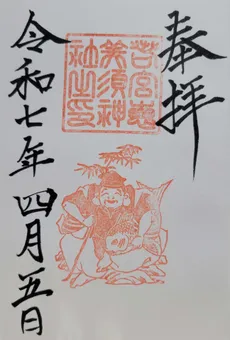 奉拝
若宮恵
美須神
社之印
令和七年四月五日